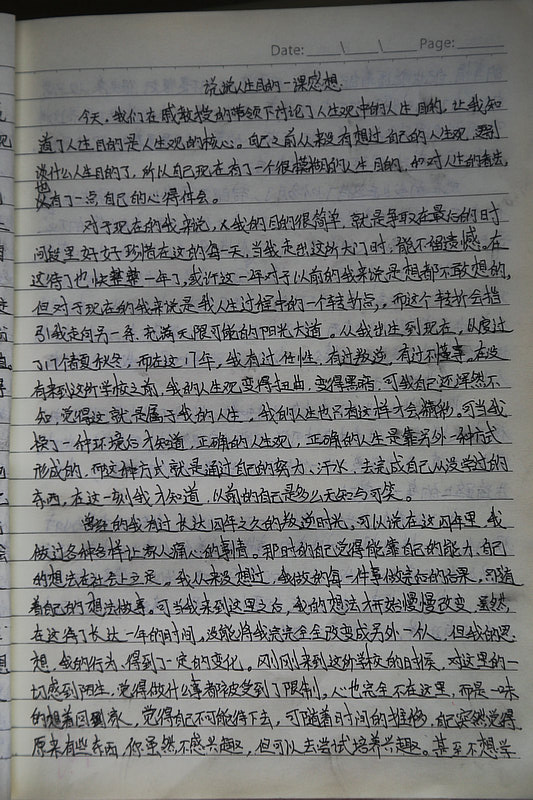 Date: \ \ Page:
说说人生目的一课感想
今天,我们在戚教授的带领下讨论了人生观中的人生目的,让我知
道了人生目的是人生观的核心。自己之前从来没有想过自己的人生观,更别
谈什么人生目的了,所以自己现在有了一个很模糊的人生目的,和对人生的看法,
也又有了一点自己的心得体会。
对于现在的我来说,我的目的很简单,就是争取在最后的时
间段里好好珍惜在这的每一天,当我走出这所大门时,能不留遗憾。在
这待了也快整整一年了,或许这一年对于以前的我来说是想都不敢想的,
但对于现在的我来说是我人生过程中的一个转折点,而这个转折会指
引我走向另一条充满无限可能的阳光大道。从我出生到现在,从度过
了17个春夏秋冬,而在这17年,我有过任性,有过叛逆,有过不懂事。在没
有来到这所学校之前,我的人生观变得扭曲,变得黑暗,可我自己还浑然不
知,觉得这就是属于我的人生,我的人生也只有这样才会精彩。可当我
换了一种环境后才知道,正确的人生观,正确的人生是靠另外一种方式
形成的,而这种方式就是通过自己的努力、汗水,去完成自己从没学过的
东西,在这一刻我才知道,以前的自己是多么无知与可笑。
曾经的我有过长达四年之久的叛逆时光,可以说在这四年里,我
做过各种各样让家人痛心的事情。那时的自己觉得能靠自己的能力,自己
的想法在社会上立足。我从来没想过,我做的每一件事做完后的后果,只随
着自己的想法做事。可当我来到这里之后,我的想法才开始慢慢改变,虽然,
在这待了长达一年的时间,没能将我完完全全改变成另外一个人,但我的思
想,我的行为,得到了一定的变化。刚刚来到这所学校的时候,对这里的一
切感到陌生,觉得做什么事都被受到了限制,心也完全不在这里,而是一味
的想着回到家,觉得自己不可能待下去,可随着时间的推移,自己突然觉得
原来有些东西,你虽然不感兴趣,但可以去尝试培养兴趣。甚至不想学